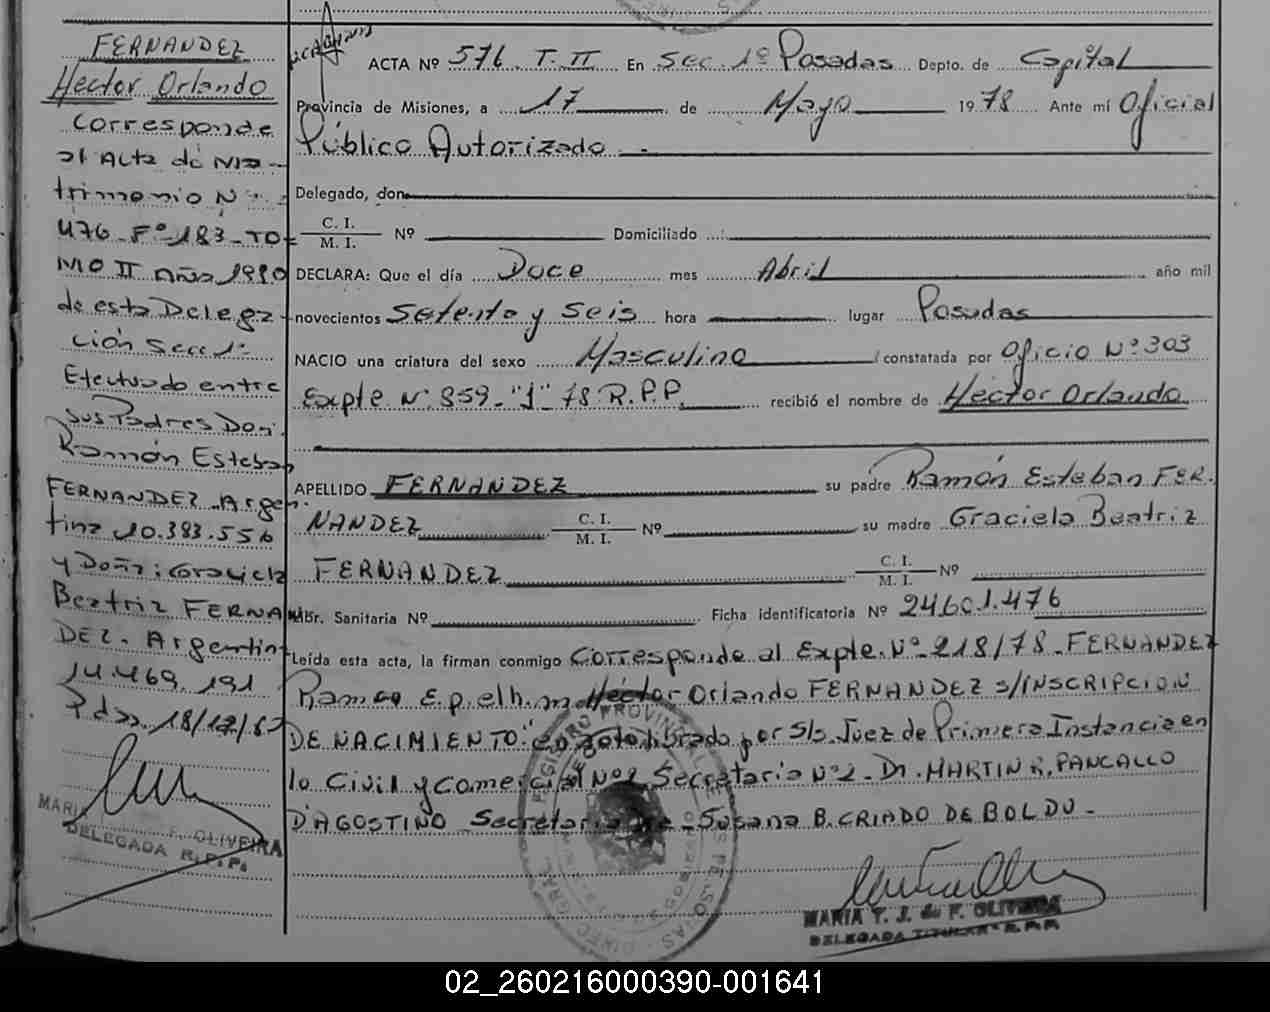 FERNANDEZ
Hector Orlando
Corresponde
al Acta de Ma-
trimonio Nº
476 - Fº 183 - TO-
MO II Año 1980
de esta Delega-
ción Secc 1º
Efectuado entre
sus Padres Don:
Ramón Esteban
FERNANDEZ - Argen-
tino 10.383.556
y Doña: Graciela
Beatriz FERNAN
DEZ - Argentina
14.469.191
Pdas. 18/12/
MARIA F. OLIVEIRA
DELEGADA R.P.P.
ACTA Nº 576 T-II En Sec. 1º Posadas Depto. de Capital
Provincia de Misiones, a 17 de Mayo 1978 Ante mí Oficial
Público Autorizado -
Delegado, don
C. I.
M. I. Nº Domiciliado
DECLARA: Que el día Doce mes Abril año mil
novecientos Setenta y Seis hora lugar Posadas
NACIO una criatura del sexo Masculino constatada por Oficio Nº 303
Expte Nº 859 - "J" - 78 R.P.P. recibió el nombre de Héctor Orlando
APELLIDO FERNANDEZ su padre Ramón Esteban FER-
NANDEZ C. I. M. I. Nº su madre Graciela Beatriz
FERNANDEZ C. I. M. I. Nº
Libr. Sanitaria Nº Ficha identificatoria Nº 24.601.476
Leída esta acta, la firman conmigo Corresponde al Expte. Nº 218/78 - FERNANDEZ
Ramón E. p. el h. m. Héctor Orlando FERNANDEZ s/INSCRIPCION
DE NACIMIENTO" en auto librado por S/S. Juez de Primera Instancia en
lo Civil y Comercial Nº 2 Secretaria Nº 2 - Dr. MARTIN R. PANCALLO
D'AGOSTINO - Secretaria - Susana B. CRIADO DE BOLDU -
MARIA T. J. de F. OLIVEIRA
DELEGADA TITULAR R.P.P.
02_260216000390-001641